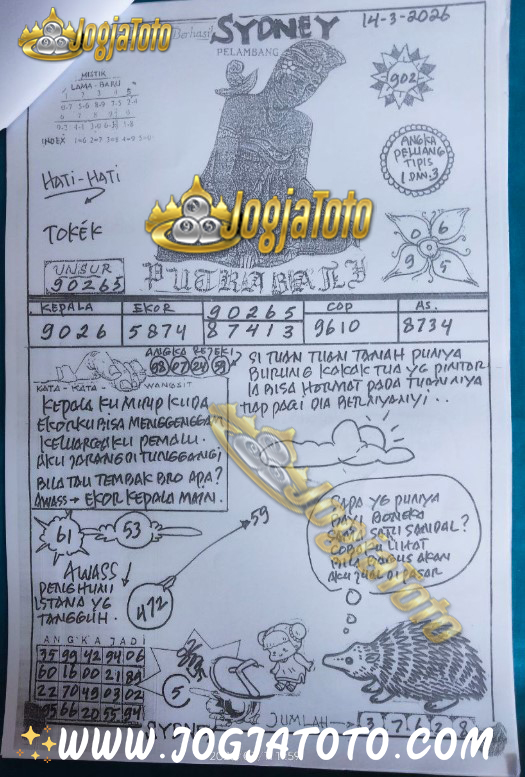 JOGJATOTO
Berhasil
SYDNEY
14-3-2026
PELAMBANG
MISTIK
LAMA - BARU
INDEX
902
ANGKA
PELUANG
TIPIS
1 DAN 3
HATI-HATI
TOKÉK
JOGJATOTO
0 6
9 5
UNSUR
90265
PUTRA BALI
KEPALA EKOR 90265 COP AS.
9026 5874 87413 9610 8734
ANGKA REJEKI
KATA - KATA - WANGSIT
KEPALA KU MIRIP KUDA
EKORKU BISA MENGGENGGAM
KELUARGAKU PEMALU.
AKU JARANG DI TUNGGANGI
BILA TAU TEMBAK BRO APA?
AWASS → EKOR KEPALA MAIN.
SI TUAN TUAN TANAH PUNYA
BURUNG KAKAK TUA YG PINTAR
IA BISA HORMAT PADA TUANNYA
TIAP PAGI DIA BERNYANYI...
JOGJATOTO
61
53
59
SAPA YG PUNYA
BAYI BONEKA
SAMA SATU SANDAL?
COBA KU LIHAT
BILA BAGUS AKAN
AKU JUAL DI PASAR
AWASS
PENGHUNI
ISTANA YG
TANGGUH.
472
ANGKA JADI
35 99 42 94 06
60 16 00 21 89
22 70 49 03 02
95 66 20 55 94
5
SYDNEY
JUMLAH → 3 7 6 2 8
WWW.JOGJATOTO.COM